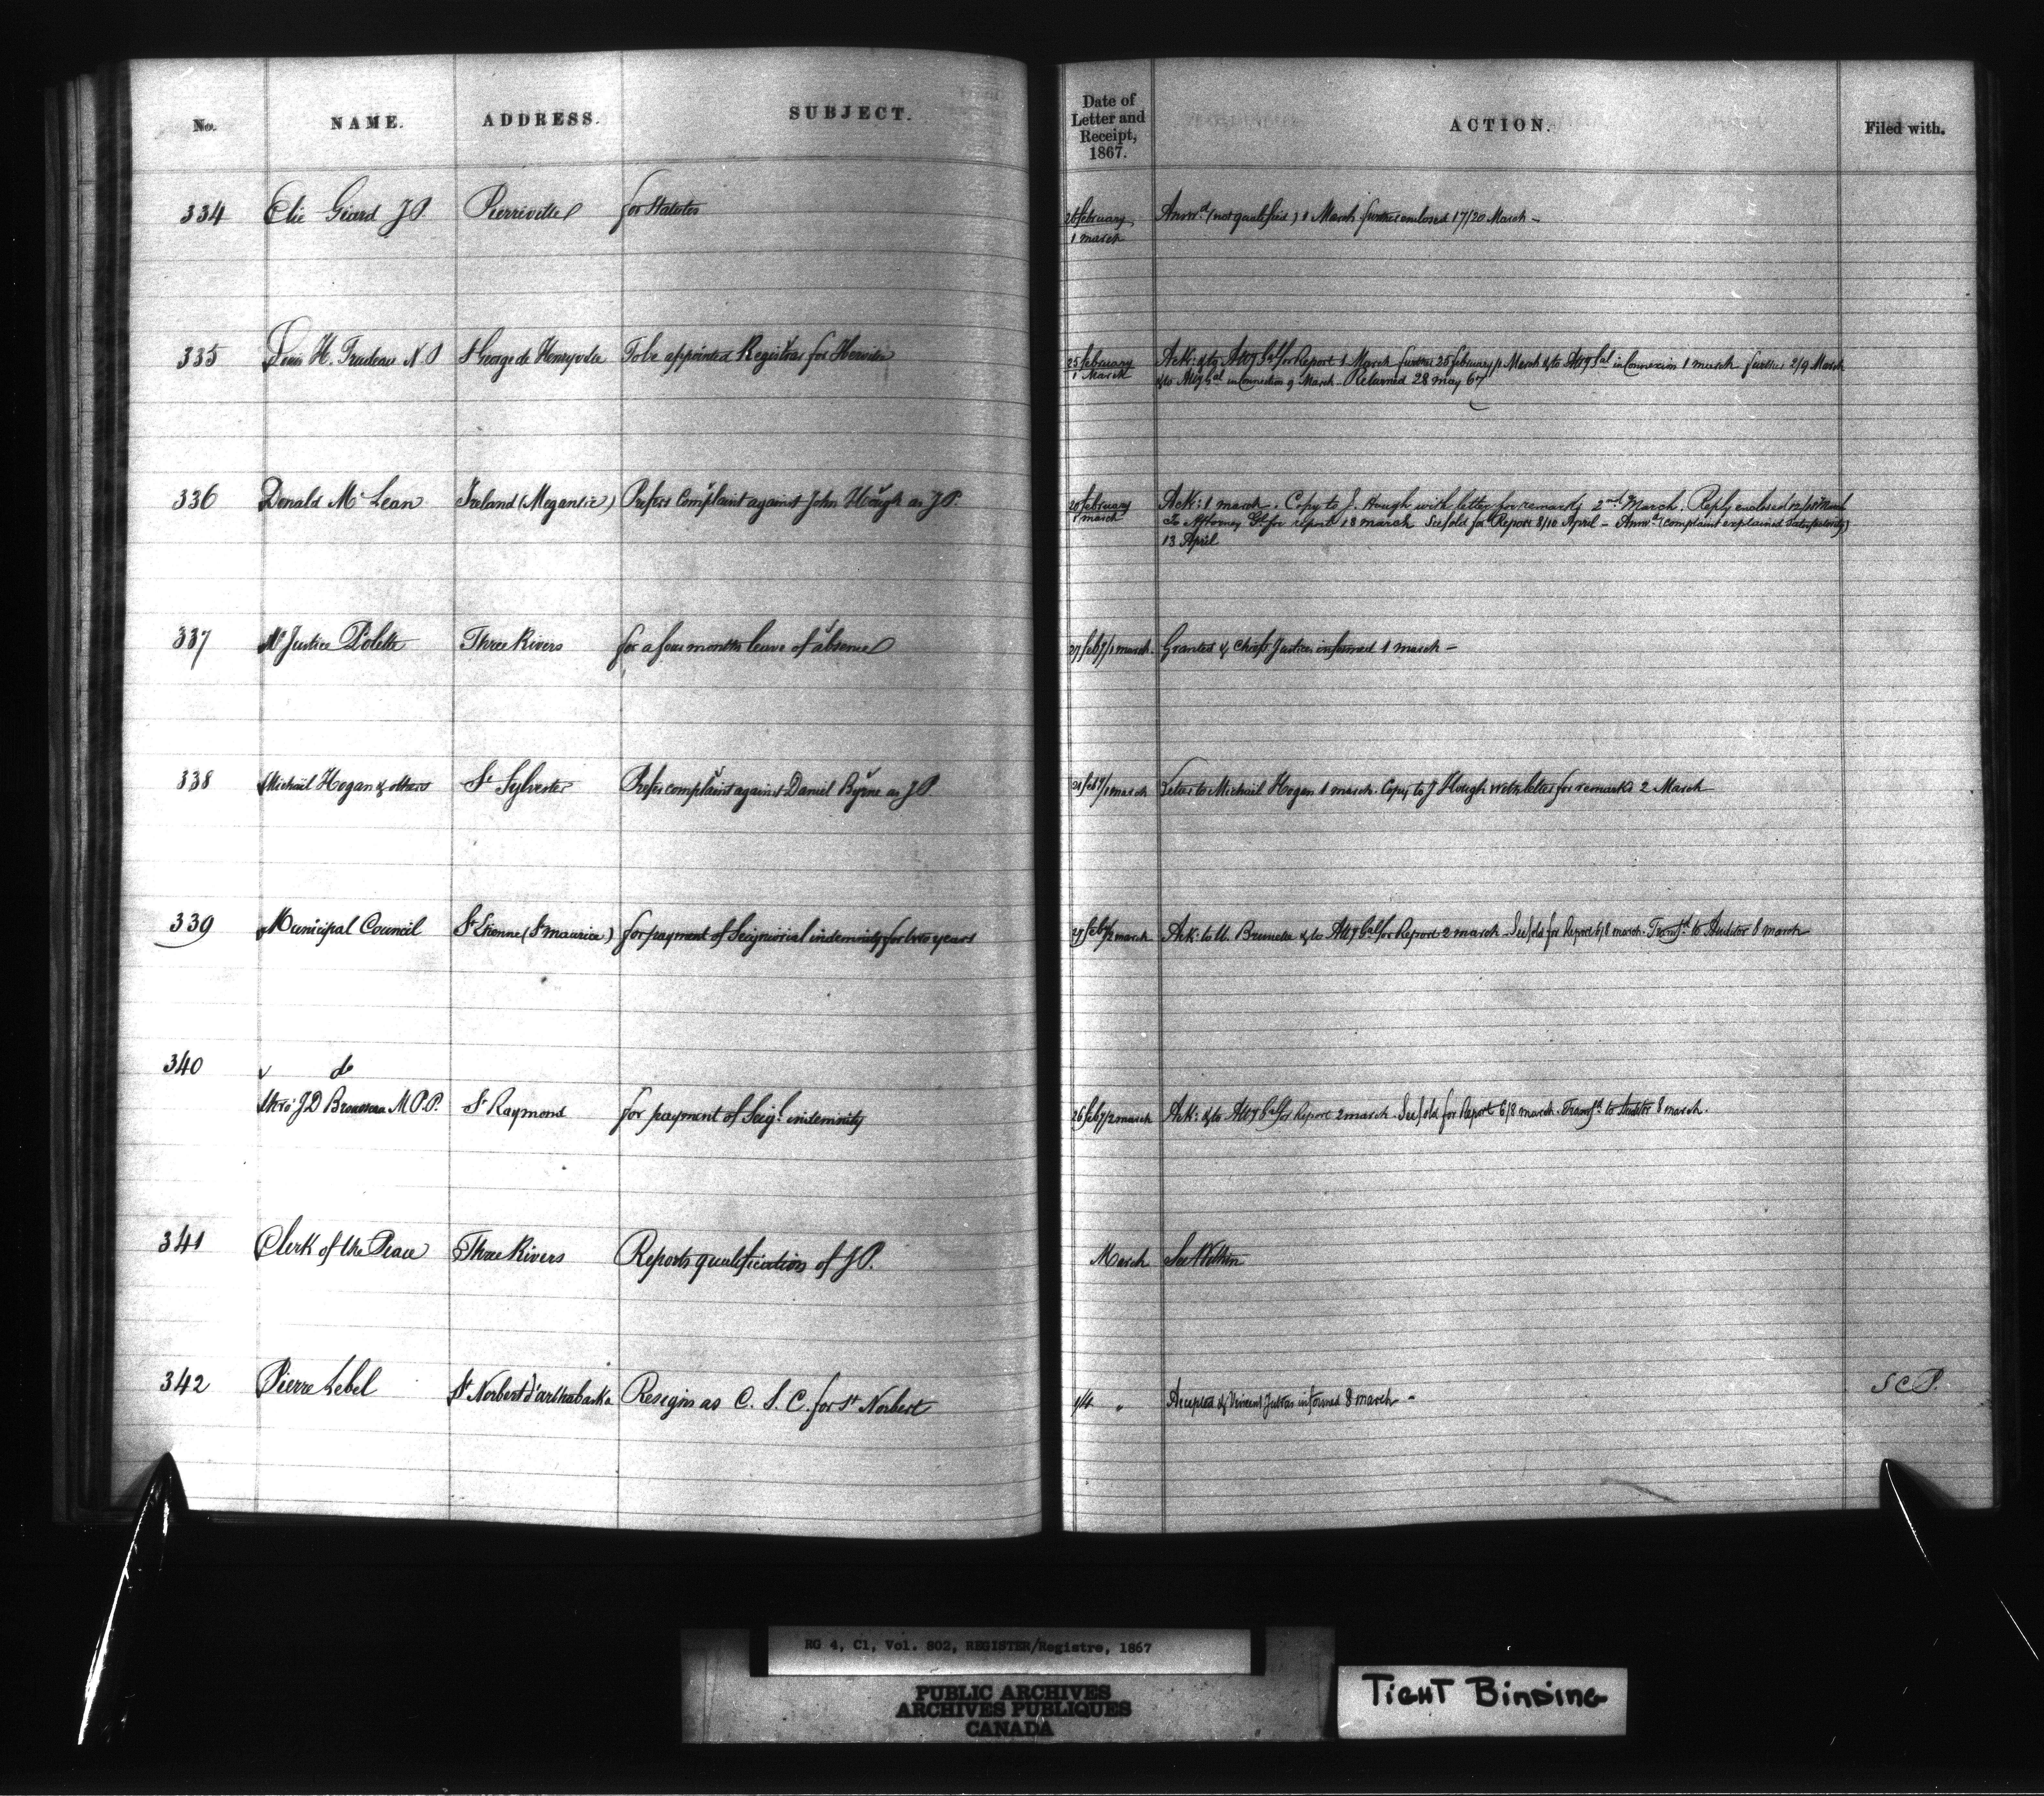 No. NAME. ADDRESS. SUBJECT. Date of Letter and Receipt, 1867. ACTION. Filed with.
334 Elie Giard J.P. Pierreville for Statutes 26 February / 1 march Answd (not qualified) 1 March further enclosed 17/20 March –
335 Louis H. Trudeau N.P. St George de Henryville To be appointed Registrar for Iberville 25 February / 1 March Ack: & to Atty Gal for Report 1 March further 25 february/1 March & to Atty Gal in Connexion 1 march further 2/9 March
& to Atty Gal in Connection 9 March – Returned 28 may 67
336 Donald McLean Ireland (Megantic) Prefers Complaint against John Hough as J.P. 20 February / 1 march Ack: 1 march. Copy to J. Hough with letter for remarks 2nd March. Reply enclosed 12/ March
To Attorney Gl for report 18 march See fold for Report 8/10 April – Answd (complaint explained satisfactorily)
13 April
337 Mr Justice Polette Three Rivers for a four months leave of absence 27 feby/1 march. Granted & Chief Justice informed 1 march –
338 Michail Hogan & others St Sylvester Prefer complaint against Daniel Byrne as J.P. feby/1 march Letter to Michail Hogan 1 march. Copy to J Hough with letter for remarks 2 March
339 Municipal Council St Etienne (St Maurice) for payment of Seigniorial indemnity for two years feby/2 march Ack: to U. Brunelle & to Atty Gal for Report 2 march. See fold for Report 6/8 march. Transfd to Auditor 8 march
340 do
thro' J D Brousseau M.P.P. St Raymond for payment of Seigl indemnity 26 feby/2 march Ack: & to Atty Gal for Report 2 march. See fold for Report 6/8 march. Transfd to Auditor 8 march.
341 Clerk of the Peace Three Rivers Reports qualification of J.P. March See Within
342 Pierre Lebel St Norbert d'arthabaska Resigns as C. S. C. for St Norbert 1/4 " Accepted & Vincent Jutras informed 8 march – S C P.
RG 4, C1, Vol. 802, REGISTER/Registre, 1867
PUBLIC ARCHIVES
ARCHIVES PUBLIQUES
CANADA
TIGHT BINDING